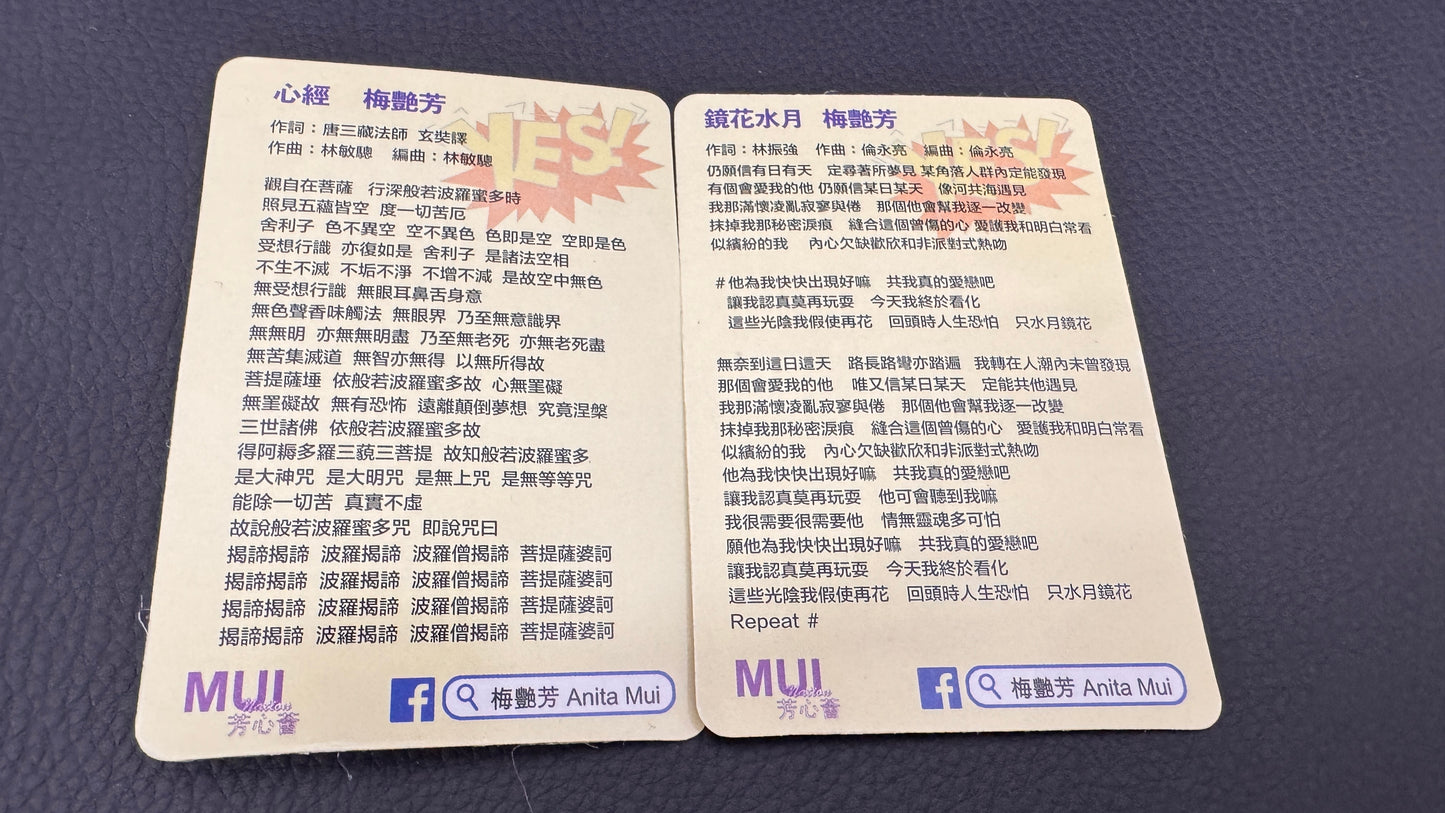 心經 梅艷芳
作詞：唐三藏法師 玄奘譯
作曲：林敏驄 編曲：林敏驄
觀自在菩薩 行深般若波羅蜜多時
照見五蘊皆空 度一切苦厄
舍利子 色不異空 空不異色 色即是空 空即是色
受想行識 亦復如是 舍利子 是諸法空相
不生不滅 不垢不淨 不增不減 是故空中無色
無受想行識 無眼耳鼻舌身意
無色聲香味觸法 無眼界 乃至無意識界
無無明 亦無無明盡 乃至無老死 亦無老死盡
無苦集滅道 無智亦無得 以無所得故
菩提薩埵 依般若波羅蜜多故 心無罣礙
無罣礙故 無有恐怖 遠離顛倒夢想 究竟涅槃
三世諸佛 依般若波羅蜜多故
得阿耨多羅三藐三菩提 故知般若波羅蜜多
是大神咒 是大明咒 是無上咒 是無等等咒
能除一切苦 真實不虛
故說般若波羅蜜多咒 即說咒曰
揭諦揭諦 波羅揭諦 波羅僧揭諦 菩提薩婆訶
揭諦揭諦 波羅揭諦 波羅僧揭諦 菩提薩婆訶
揭諦揭諦 波羅揭諦 波羅僧揭諦 菩提薩婆訶
揭諦揭諦 波羅揭諦 波羅僧揭諦 菩提薩婆訶
YES!
MUI
芳心薈
梅艷芳 Anita Mui
鏡花水月 梅艷芳
作詞：林振強 作曲：倫永亮 編曲：倫永亮
仍願信有日有天 定尋著所夢見 某角落人群內定能發現
有個會愛我的他 仍願信某日某天 像河共海遇見
我那滿懷凌亂寂寥與倦 那個他會幫我逐一改變
抹掉我那秘密淚痕 縫合這個曾傷的心 愛護我和明白常看
似繽紛的我 內心欠缺歡欣和非派對式熱吻
#他為我快快出現好嘛 共我真的愛戀吧
讓我認真莫再玩耍 今天我終於看化
這些光陰我假使再花 回頭時人生恐怕 只水月鏡花
無奈到這日這天 路長路彎亦踏遍 我轉在人潮內未曾發現
那個會愛我的他 唯又信某日某天 定能共他遇見
我那滿懷凌亂寂寥與倦 那個他會幫我逐一改變
抹掉我那秘密淚痕 縫合這個曾傷的心 愛護我和明白常看
似繽紛的我 內心欠缺歡欣和非派對式熱吻
他為我快快出現好嘛 共我真的愛戀吧
讓我認真莫再玩耍 他可會聽到我嘛
我很需要很需要他 情無靈魂多可怕
願他為我快快出現好嘛 共我真的愛戀吧
讓我認真莫再玩耍 今天我終於看化
這些光陰我假使再花 回頭時人生恐怕 只水月鏡花
Repeat #
YES!
MUI
芳心薈
梅艷芳 Anita Mui